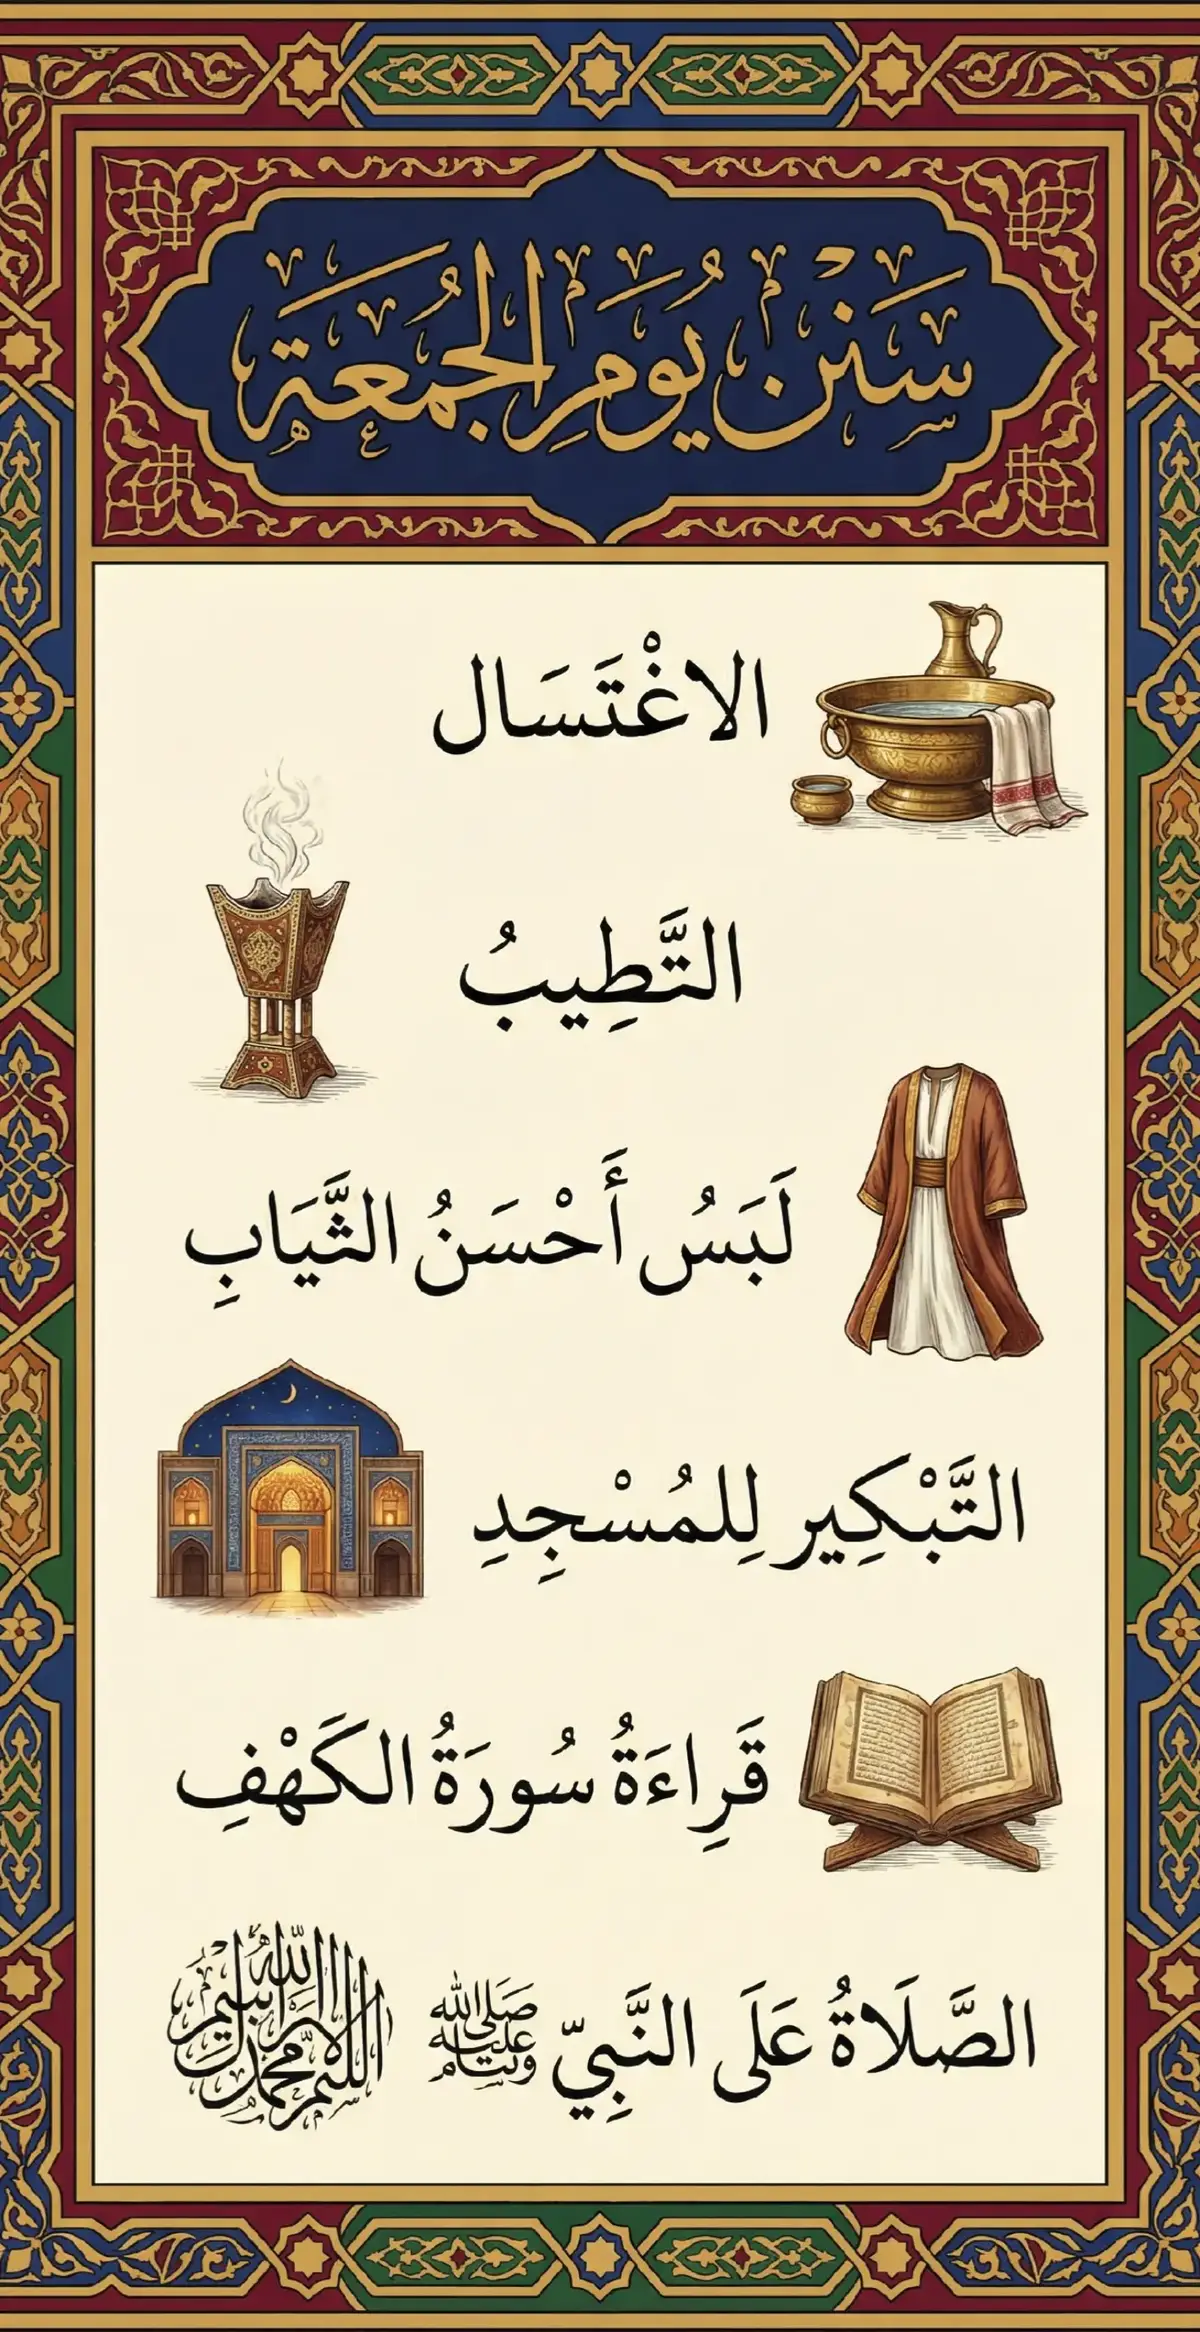 سَنَنْ يُومَرِ الجُمُعَةَ
الاغْتَسَال
التَّطِيبُ
لَبَسُ أَحْسَنُ الثَّيَابِ
التَّبْكِير لِلمُسْجِدِ
قَرِاءَةُ سُورَةُ الكَهْفِ
الصَّلَاةُ عَلَى النَّبِيّ ﷺ